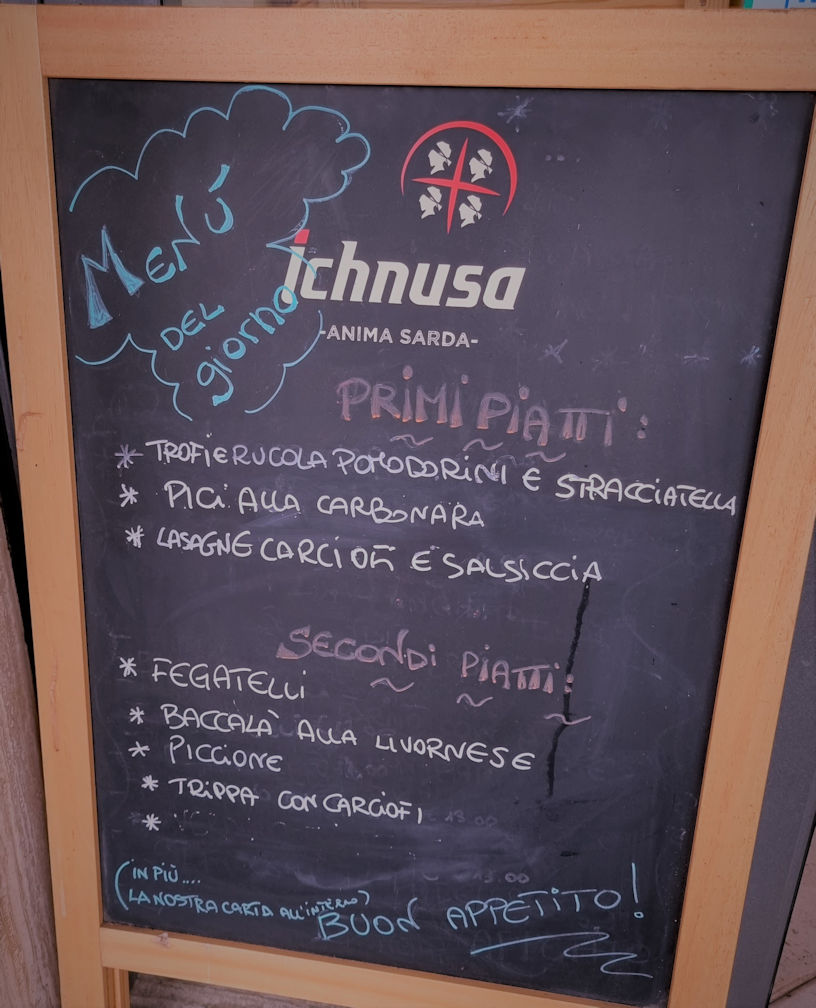 MENÙ
DEL
giorno
ichnusa
-ANIMA SARDA-
PRIMI PIATTI:
* TROFIE RUCOLA POMODORINI E STRACCIATELLA
* PICI ALLA CARBONARA
* LASAGNE CARCIOFI E SALSICCIA
SECONDI PIATTI:
* FEGATELLI
* BACCALÀ ALLA LIVORNESE
* PICCIONE
* TRIPPA CON CARCIOFI
*
(IN PIÙ....
LA NOSTRA CARTA ALL'INTERNO)
BUON APPETITO!